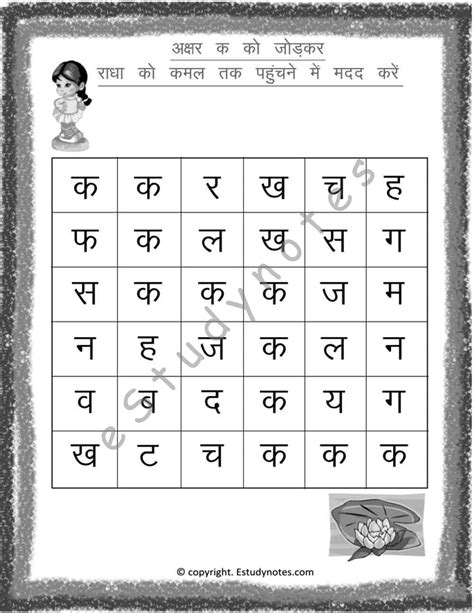 अक्षर क को जोड़कर
राधा को कमल तक पहुंचने में मदद करें
क क र ख च ह
फ क ल ख स ग
स क क क ज म
न ह ज क ल न
व ब द क य ग
ख ट च क क क
eStudynotes
© copyright. Estudynotes.com